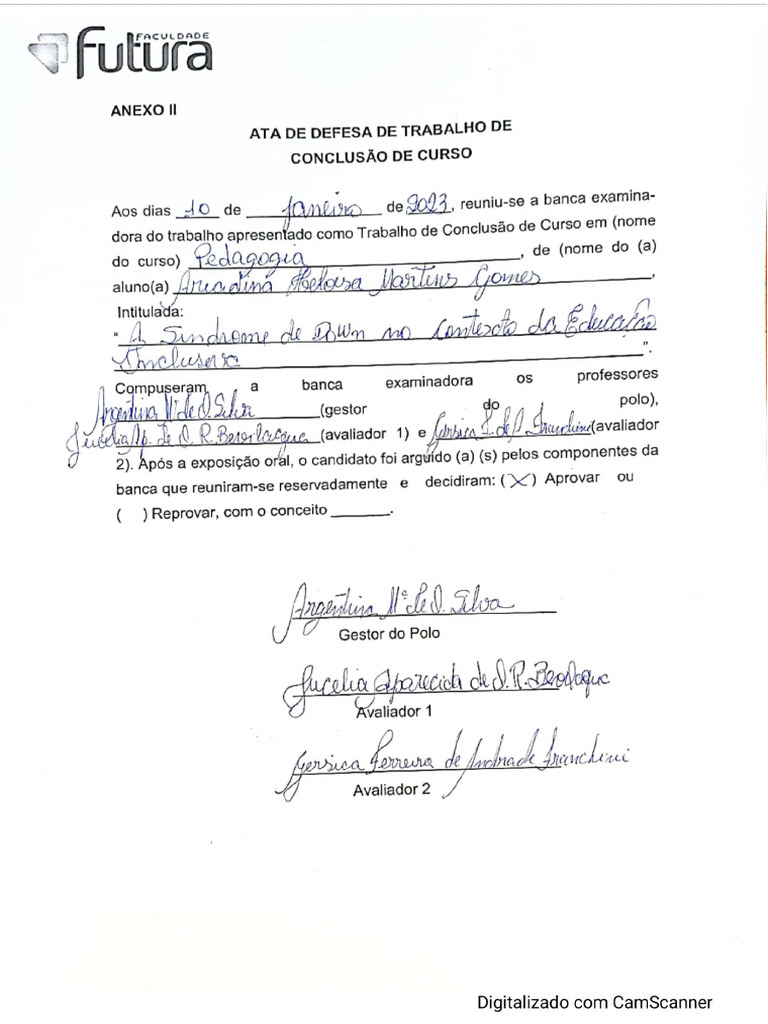 FACULDADE
Futura
ANEXO II
ATA DE DEFESA DE TRABALHO DE
CONCLUSÃO DE CURSO
Aos dias 10 de Janeiro de 2023, reuniu-se a banca examina-
dora do trabalho apresentado como Trabalho de Conclusão de Curso em (nome
do curso) Pedagogia, de (nome do (a)
aluno(a) Heloisa Martins Gomes,
Intitulada:
" A Síndrome de Down no Contexto da Educação
Inclusiva ".
Compuseram a banca examinadora os professores
Argentina Mª de O. Silva (gestor do polo),
Jucelia Ap. de O. R. (avaliador 1) e Gersica F. de A. Franchini (avaliador
2). Após a exposição oral, o candidato foi arguido (a) (s) pelos componentes da
banca que reuniram-se reservadamente e decidiram: (X) Aprovar ou
( ) Reprovar, com o conceito ______.
Argentina Mª de O. Silva
Gestor do Polo
Jucelia Aparecida de O. R.
Avaliador 1
Gersica Ferreira de Andrade Franchini
Avaliador 2
Digitalizado com CamScanner